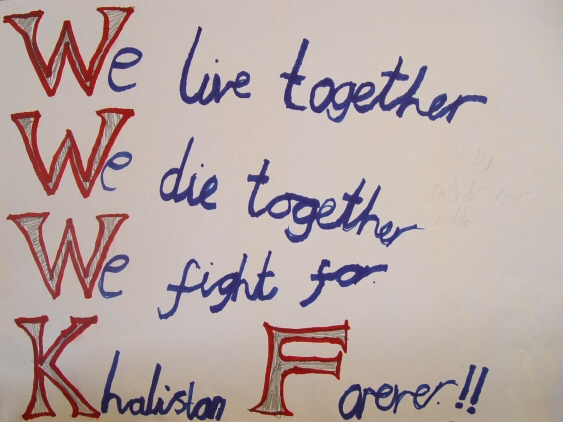 We live together
We die together
We fight for
Khalistan Forever!!
By